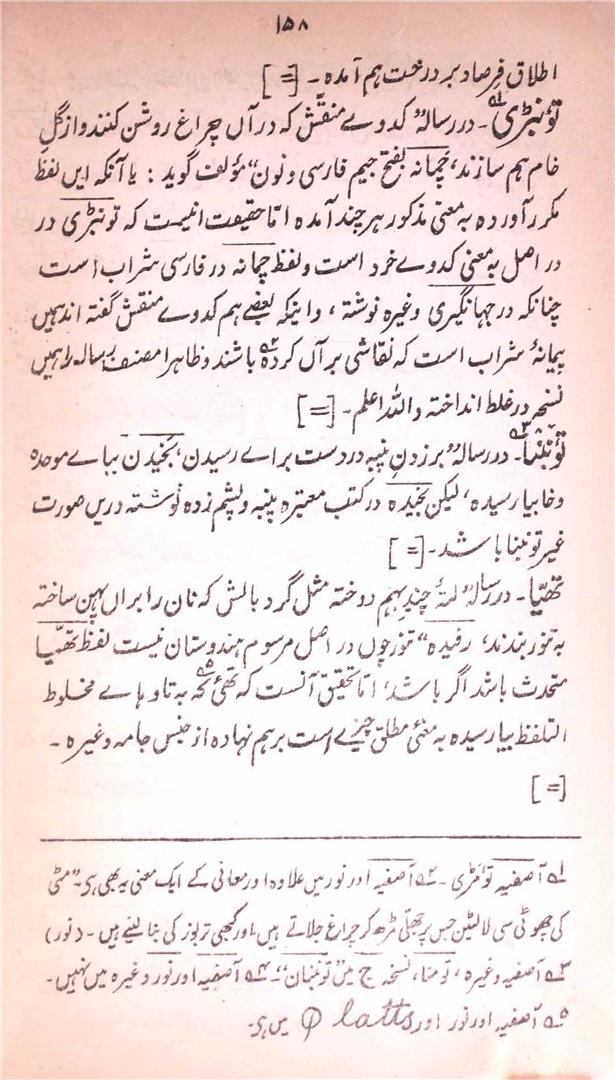 ۱۵۸
اطلاق فرصاد بر درخت ہم آمدہ۔ [=]
تونبڑی۱؎۔ در رسالہ "کدوے منقّش کہ در آں چراغ روشن کنند و از گلِ
خام ہم سازند، چمانہ بفتح جیم فارسی و نون" مؤلف گوید : یا آنکہ ایں لفظ
مکرر آوردہ بہ معنی مذکور ہر چند آمدہ امّا حقیقت انیست کہ تونبڑی در
در اصل بہ معنی کدوے خرد است و لفظ چمانہ در فارسی شراب است
چنانکہ در جہانگیری وغیرہ نوشتہ ، و اینکہ بعضے ہم کدوے منقش گفتہ اند ہمیں
پیمانۂ شراب است کہ نقاشی بر آں کردہ۲؎ باشند و ظاہرا مصنف رسالہ را ہمیں
نسخہ در غلط انداختہ واللہ اعلم۔ [=]
تونبنا۳؎۔ در رسالہ "بر زدنِ پنبہ در دست براے رسیدن، بخیدن بباے موحدہ
و خا بیا رسیدہ، لیکن بخیدہ در کتب معتبرہ پنبہ و پشم زدہ نوشتہ دریں صورت
غیر تونبنا باشد۔ [=]
تھیّا۔ در رسالہ "لتۂ چند بہم دوختہ مثل گرد بالش کہ نان را براں پہن ساختہ
بہ تنور بندند، رفیدہ" تنور چوں در اصل مرسوم ہندوستان نیست لفظ تھیّا
متحدث باشد اگر باشد، امّا تحقیق آنست کہ تھئی۵؎ کہ بہ تا و ہاے مخلوط
التلفظ بیا رسیدہ بہ معنی مطلق چیزے است برہم نہادہ از جنس جامہ وغیرہ ۔
[=]
۱؎ آصفیہ تونمڑی ۔ ۲؎ آصفیہ اور نور میں علاوہ اور معانی کے ایک معنی یہ بھی ہیں۔ "مٹی
کی چھوٹی سی لالٹین جس پر جھلّی مڑھ کر چراغ جلاتے ہیں اور کبھی تربوز کی بنا لیتے ہیں ۔ (نور)
۳؎ آصفیہ وغیرہ ، تومنا، نسخہ ج میں "تونبنان"۔ ۴؎ آصفیہ اور نور وغیرہ میں نہیں۔
۵؎ آصفیہ اور نور اور Platts میں ہی۔